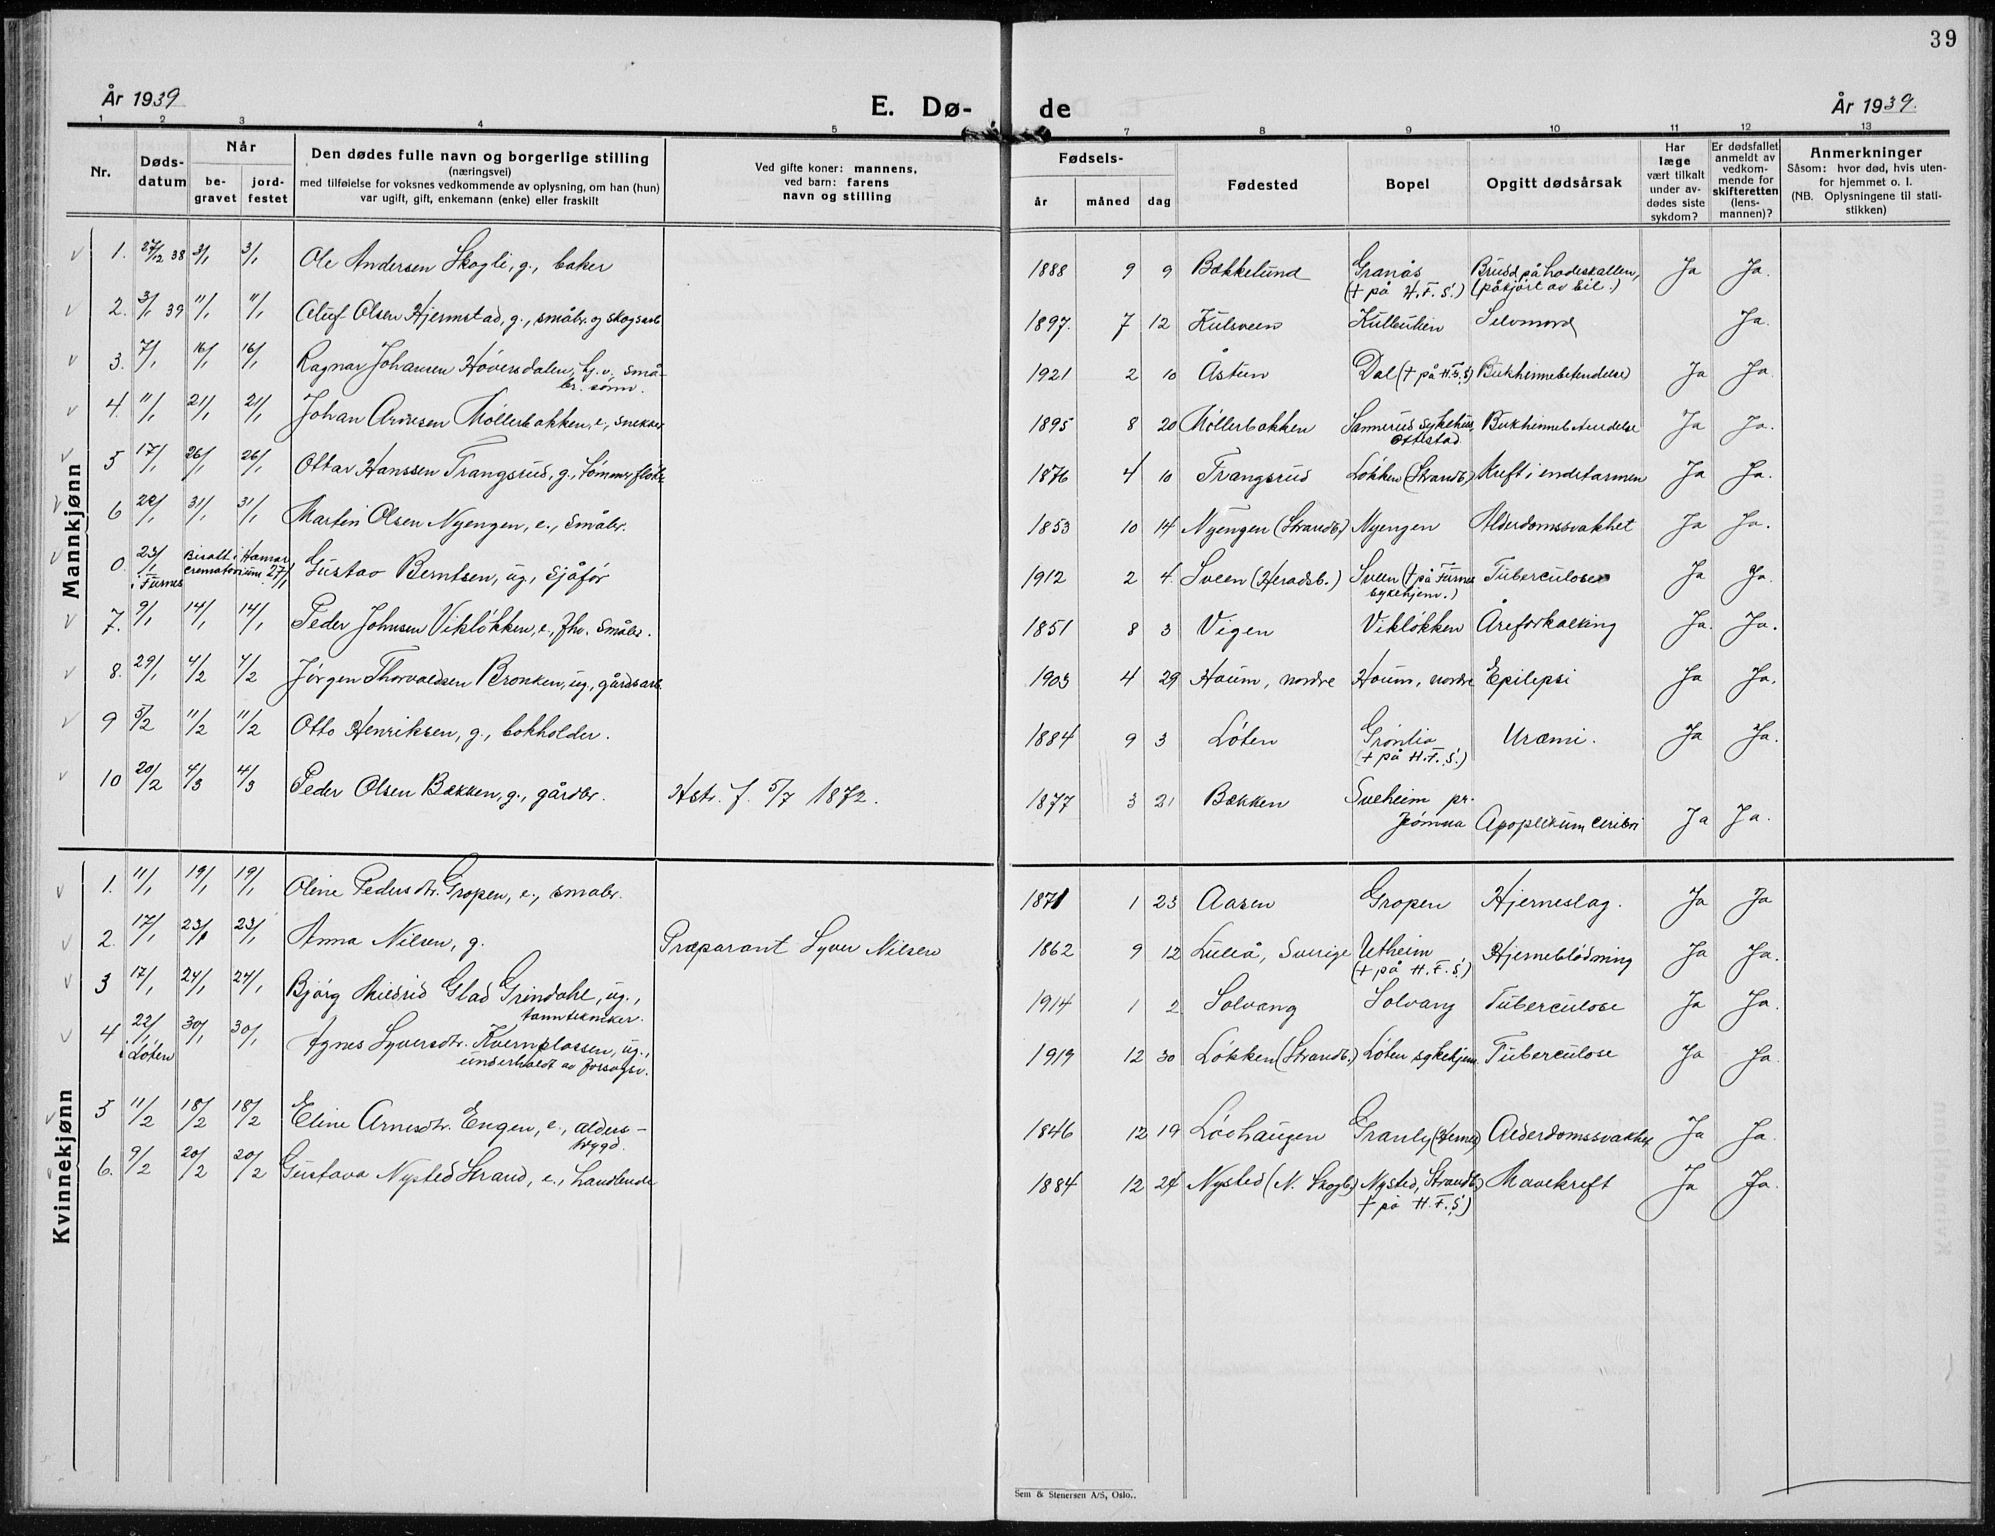 39
År 1939
E. Dø-
de
År 1939.
1 2 3 4 5 7 8 9 10 11 12 13
Nr.
Døds-
datum
Når
be-
gravet
jord-
festet
Den dødes fulle navn og borgerlige stilling
(næringsvei)
med tilføielse for voksnes vedkommende av oplysning, om han (hun)
var ugift, gift, enkemann (enke) eller fraskilt
Ved gifte koner: mannens,
ved barn: farens
navn og stilling
Fødsels-
år måned dag
Fødested
Bopel
Opgitt dødsårsak
Har
læge
vært tilkalt
under av-
dødes siste
sykdom?
Er dødsfallet
anmeldt av
vedkom-
mende for
skifteretten
(lens-
mannen)?
Anmerkninger
Såsom: hvor død, hvis uten-
for hjemmet o. l.
(NB. Oplysningene til stati-
stikken)
Mannkjønn
1. 27/12 38 3/1 3/1 Ole Andersen Skogli, g., baker 1888 9 9 Bækkelund Granås Brudd på hodeskallen, Ja Ja.
(+ på H.F.S.) (påkjørt av bil.)
2. 3/1 39 11/1 11/1 Oluf Olsen Hjermstad, g., småbr. og skogsarb 1897. 7 12 Kulsveen Kulbulien Selvmord Ja.
3. 7/1 16/1 16/1 Ragnar Johansen Høversdalen, hj.v. små- 1921 2 10 Åstun Dal (+ på H.F.S) Bukhinnebetendelse Ja Ja.
br. sønn.
4. 11/1 21/1 21/1 Johan Arnesen Møllerbakken, e., snekker 1895 8 20 Møllerbakken Sannerud sykehus, Bukhinnebetendelse Ja Ja.
Ottestad
5 17/1 26/1 26/1 Ottar Hanssen Trangsrud, g., tømmerfløt. 1876 4 10 Trangsrud Løkken (Strandb.) Kreft i endetarmen Ja Ja.
6 22/1 31/1 31/1 Martin Olsen Nyengen, e., småbr. 1853 10 14 Nyengen (Strandb.) Nyengen Alderdomssvakhet Ja Ja.
0. 23/1 i Furnes Bisatt i Hamar crematorium 27/1 Gustav Berntsen, ug., sjåfør 1912 2 4. Sveen (Heradsb.) Sveen (+ på Furnes Tuberculose Ja Ja.
sykehjem.)
7. 9/1 14/1 14/1 Peder Johnsen Vikløkken, e., fhv. småbr. 1851 8 3 Vigen Vikløkken Åreforkalking Ja. Ja.
8. 29/1 4/2 4/2 Jørgen Thorvaldsen Bronken, ug., gårdsarb. 1903 4 29 Houm, nordre Houm, nordre Epilepsi Ja Ja.
9 5/2 11/2 11/2 Otto Henriksen, g., bokholder. 1884 9 3 Løten Grønlia Uræmi. Ja Ja.
(+ på H.F.S.)
10 20/2 4/3 4/3 Peder Olsen Bækken, g., gårdbr. Hstr. f. 5/7 1872. 1877 3 21 Bækken Sveheim pr.
Jømna Apoplekium ceribri Ja Ja.
Kvinnekjønn
1. 11/1 19/1 19/1 Oline Pedersdtr. Gropen, e., småbr. 1871 1 23 Aasen Gropen Hjerneslag. Ja Ja
2. 17/1 23/1 23/1 Anna Nilsen, g. Præparant Syver Nilsen 1862 9 12 Luleå, Sverige Utheim Hjerneblødning Ja Ja.
(+ på H.F.S.)
3 17/1 24/1 24/1 Bjørg Mildrid Glad Grindahl, ug., 1914 1 2 Solvang Solvang Tuberculose Ja Ja.
tanntekniker.
4 22/1 i Løten 30/1 30/1 Agnes Syversdtr. Kvernplassen, ug., 1919 12 30 Løkken (Strandb.) Løten sykehjem Tuberculose Ja Ja.
underholdt av forsorgsv.
5 11/2 18/2 18/2 Eline Arnesdtr. Engen, e., alders- 1846 12 19 Løvhaugen Granly (Hernes) Alderdomssvakhet Ja Ja.
trygd.
6. 9/2 20/2 20/2 Gustava Nysted Strand, e., handlende 1884 12 24 Nysted (N. Skogb.) Nysted, Strandb.) Mavekreft Ja Ja.
+ på H.F.S)
Sem & Stenersen A/S, Oslo..